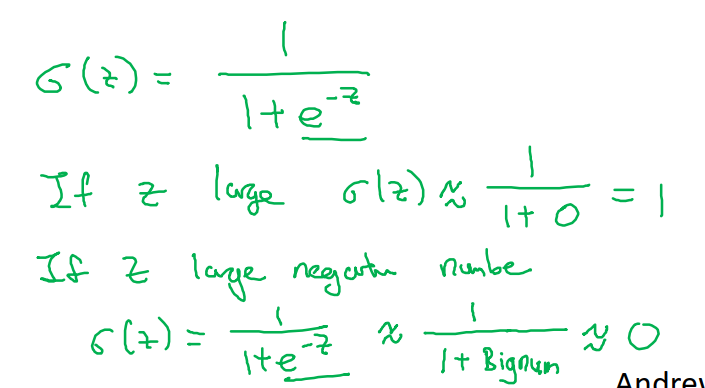 σ(z) = 1 / (1 + e^-z)
If z large σ(z) ≈ 1 / (1 + 0) = 1
If z large negative number
σ(z) = 1 / (1 + e^-z) ≈ 1 / (1 + Bignum) ≈ 0
Andrew